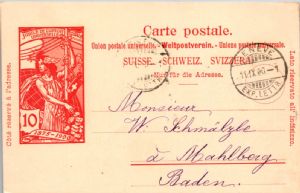 Carte postale.
Union postale universelle. - Weltpostverein. - Unione postale universale.
SUISSE. SCHWEIZ. SVIZZERA.
Nur für die Adresse.
Côté réservé à l'adresse.
Lato riservato all' indirizzo.
GENÈVE
11.IX.00.-1
EXP. LETTR.
10
1875-1900
Monsieur
W Schmälzle
à Mahlberg
Baden.